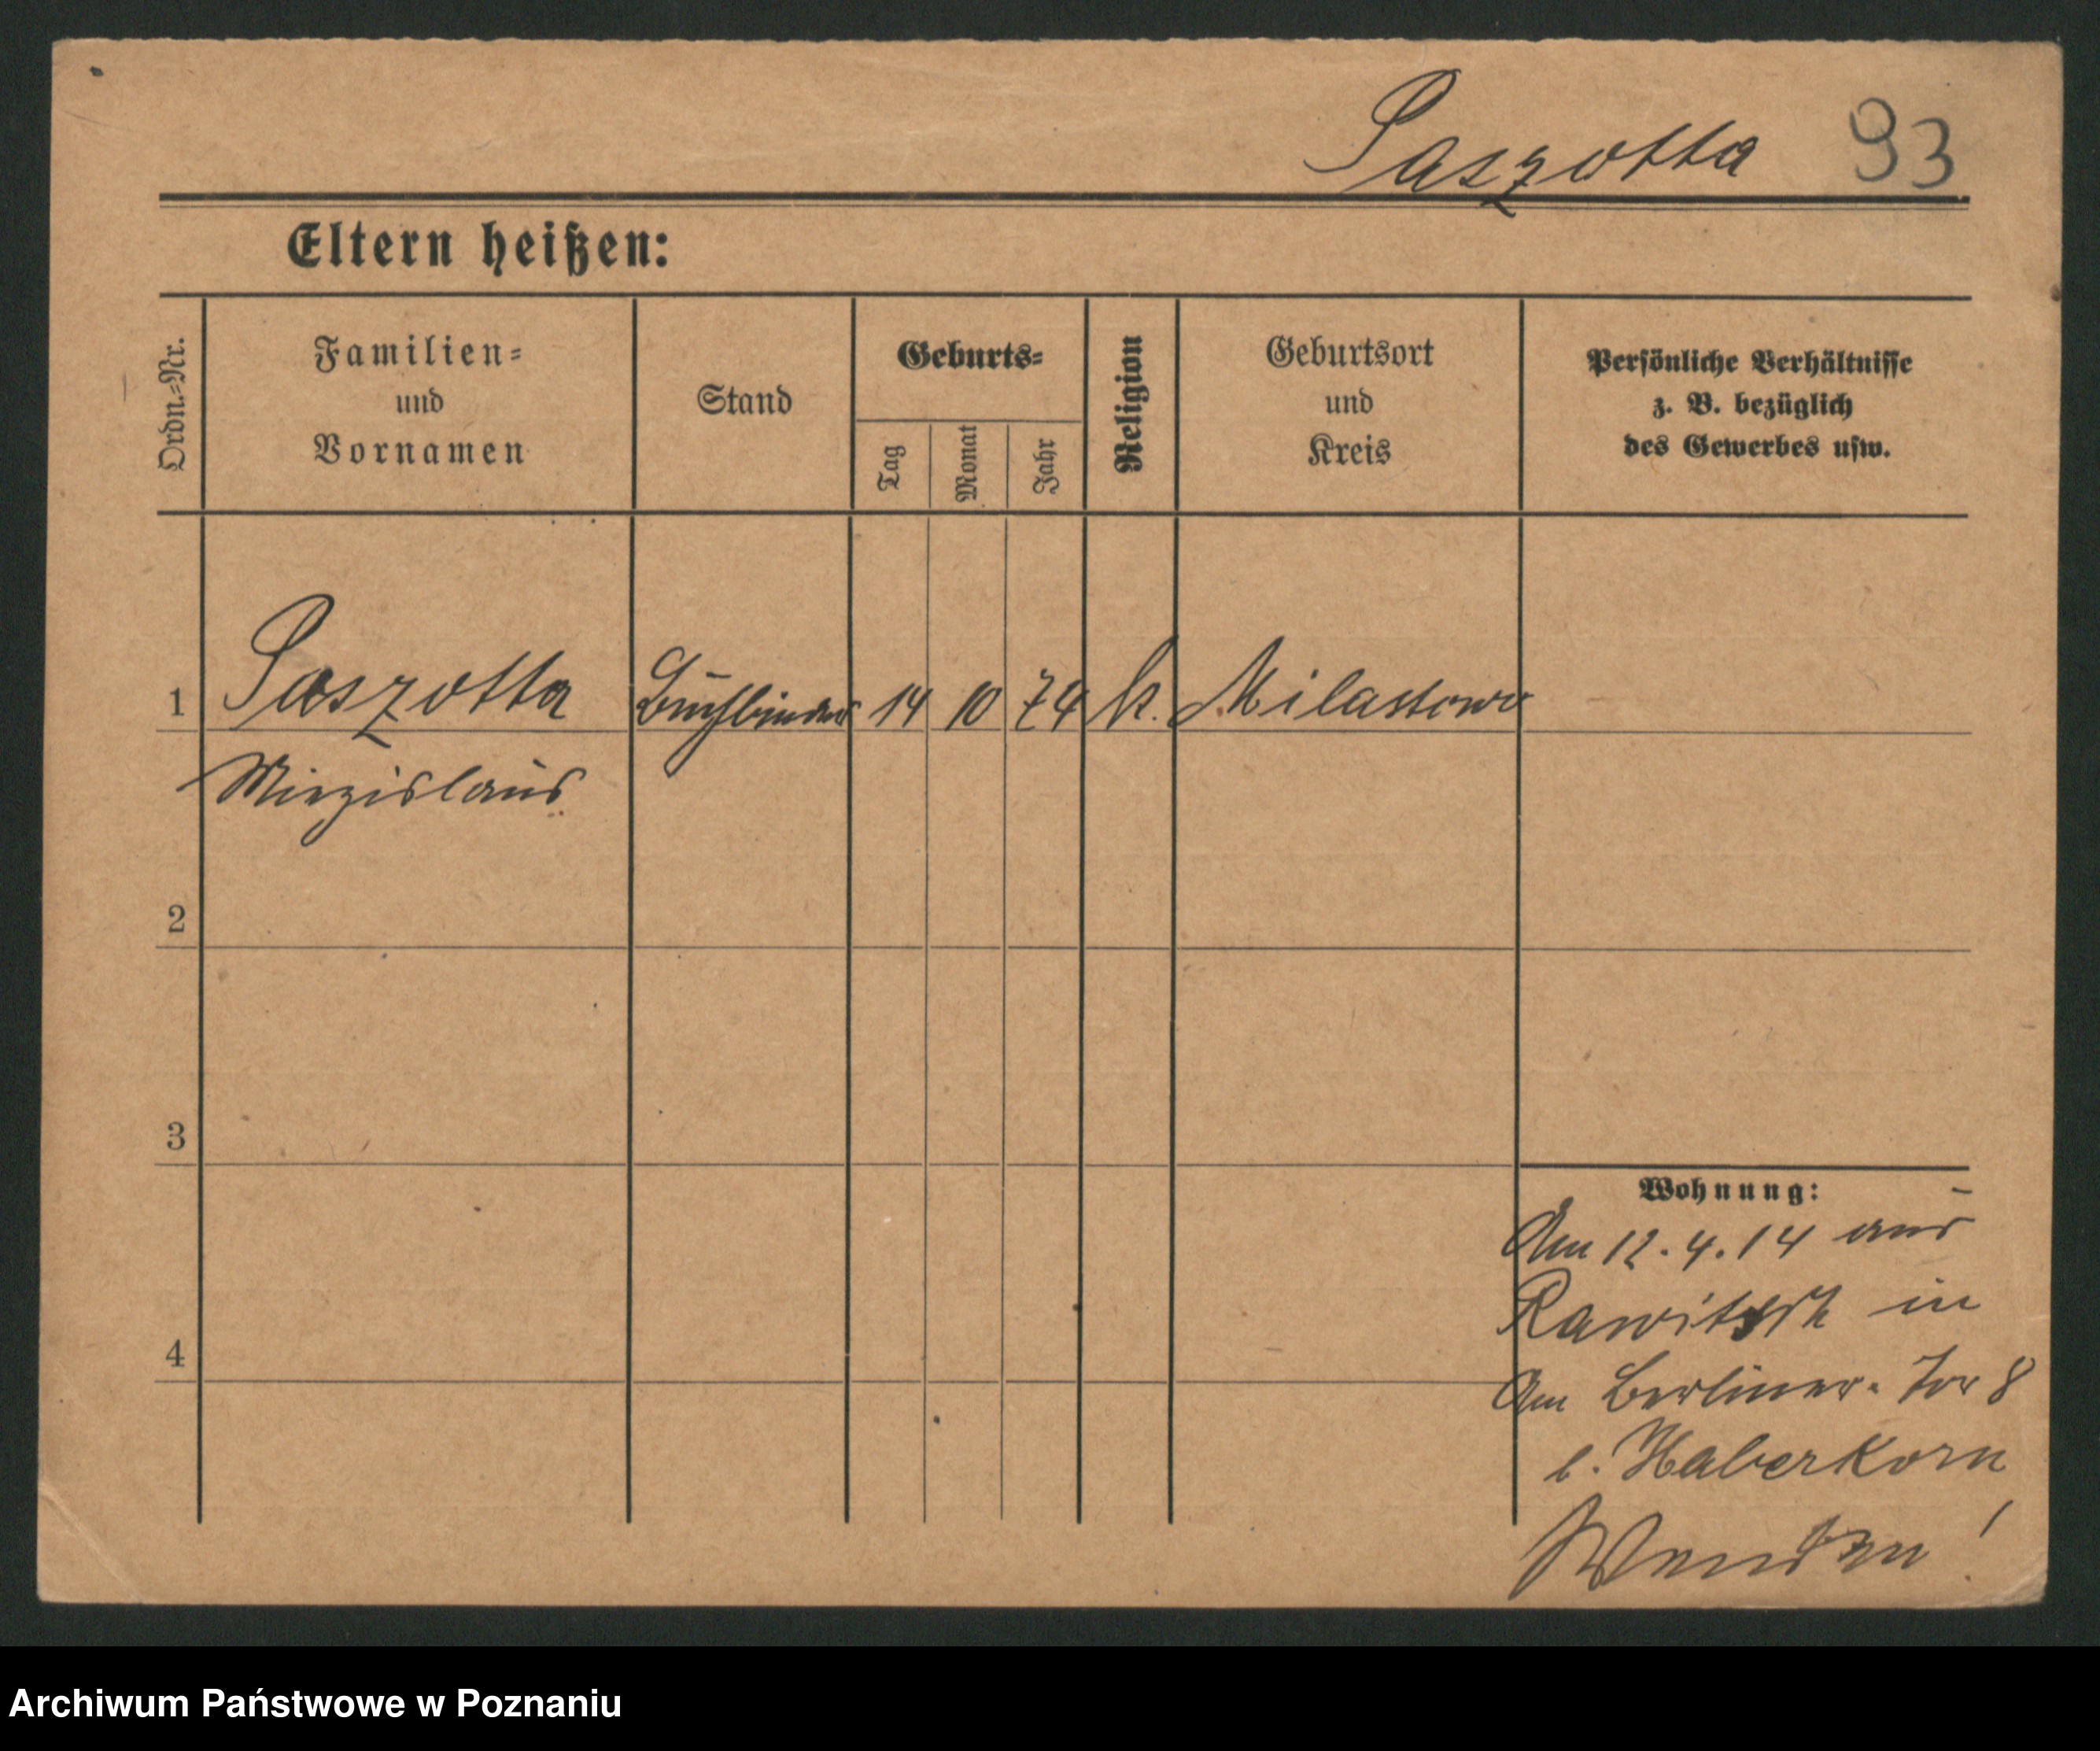 Paszotta 93
Eltern heißen:
Ordn.=Nr.
Familien=
und
Vornamen
Stand
Geburts=
Tag
Monat
Jahr
Religion
Geburtsort
und
Kreis
Persönliche Verhältnisse
z. B. bezüglich
des Gewerbes usw.
1 Paszotta Buchbinder 14 10 74 k. Milastowo
Miezislaus
2
3
4
Wohnung:
Am 12.4.14 aus
Rawitsch in
Am Berliner-Tor 8
b. Haberkorn
Wenden!
Archiwum Państwowe w Poznaniu